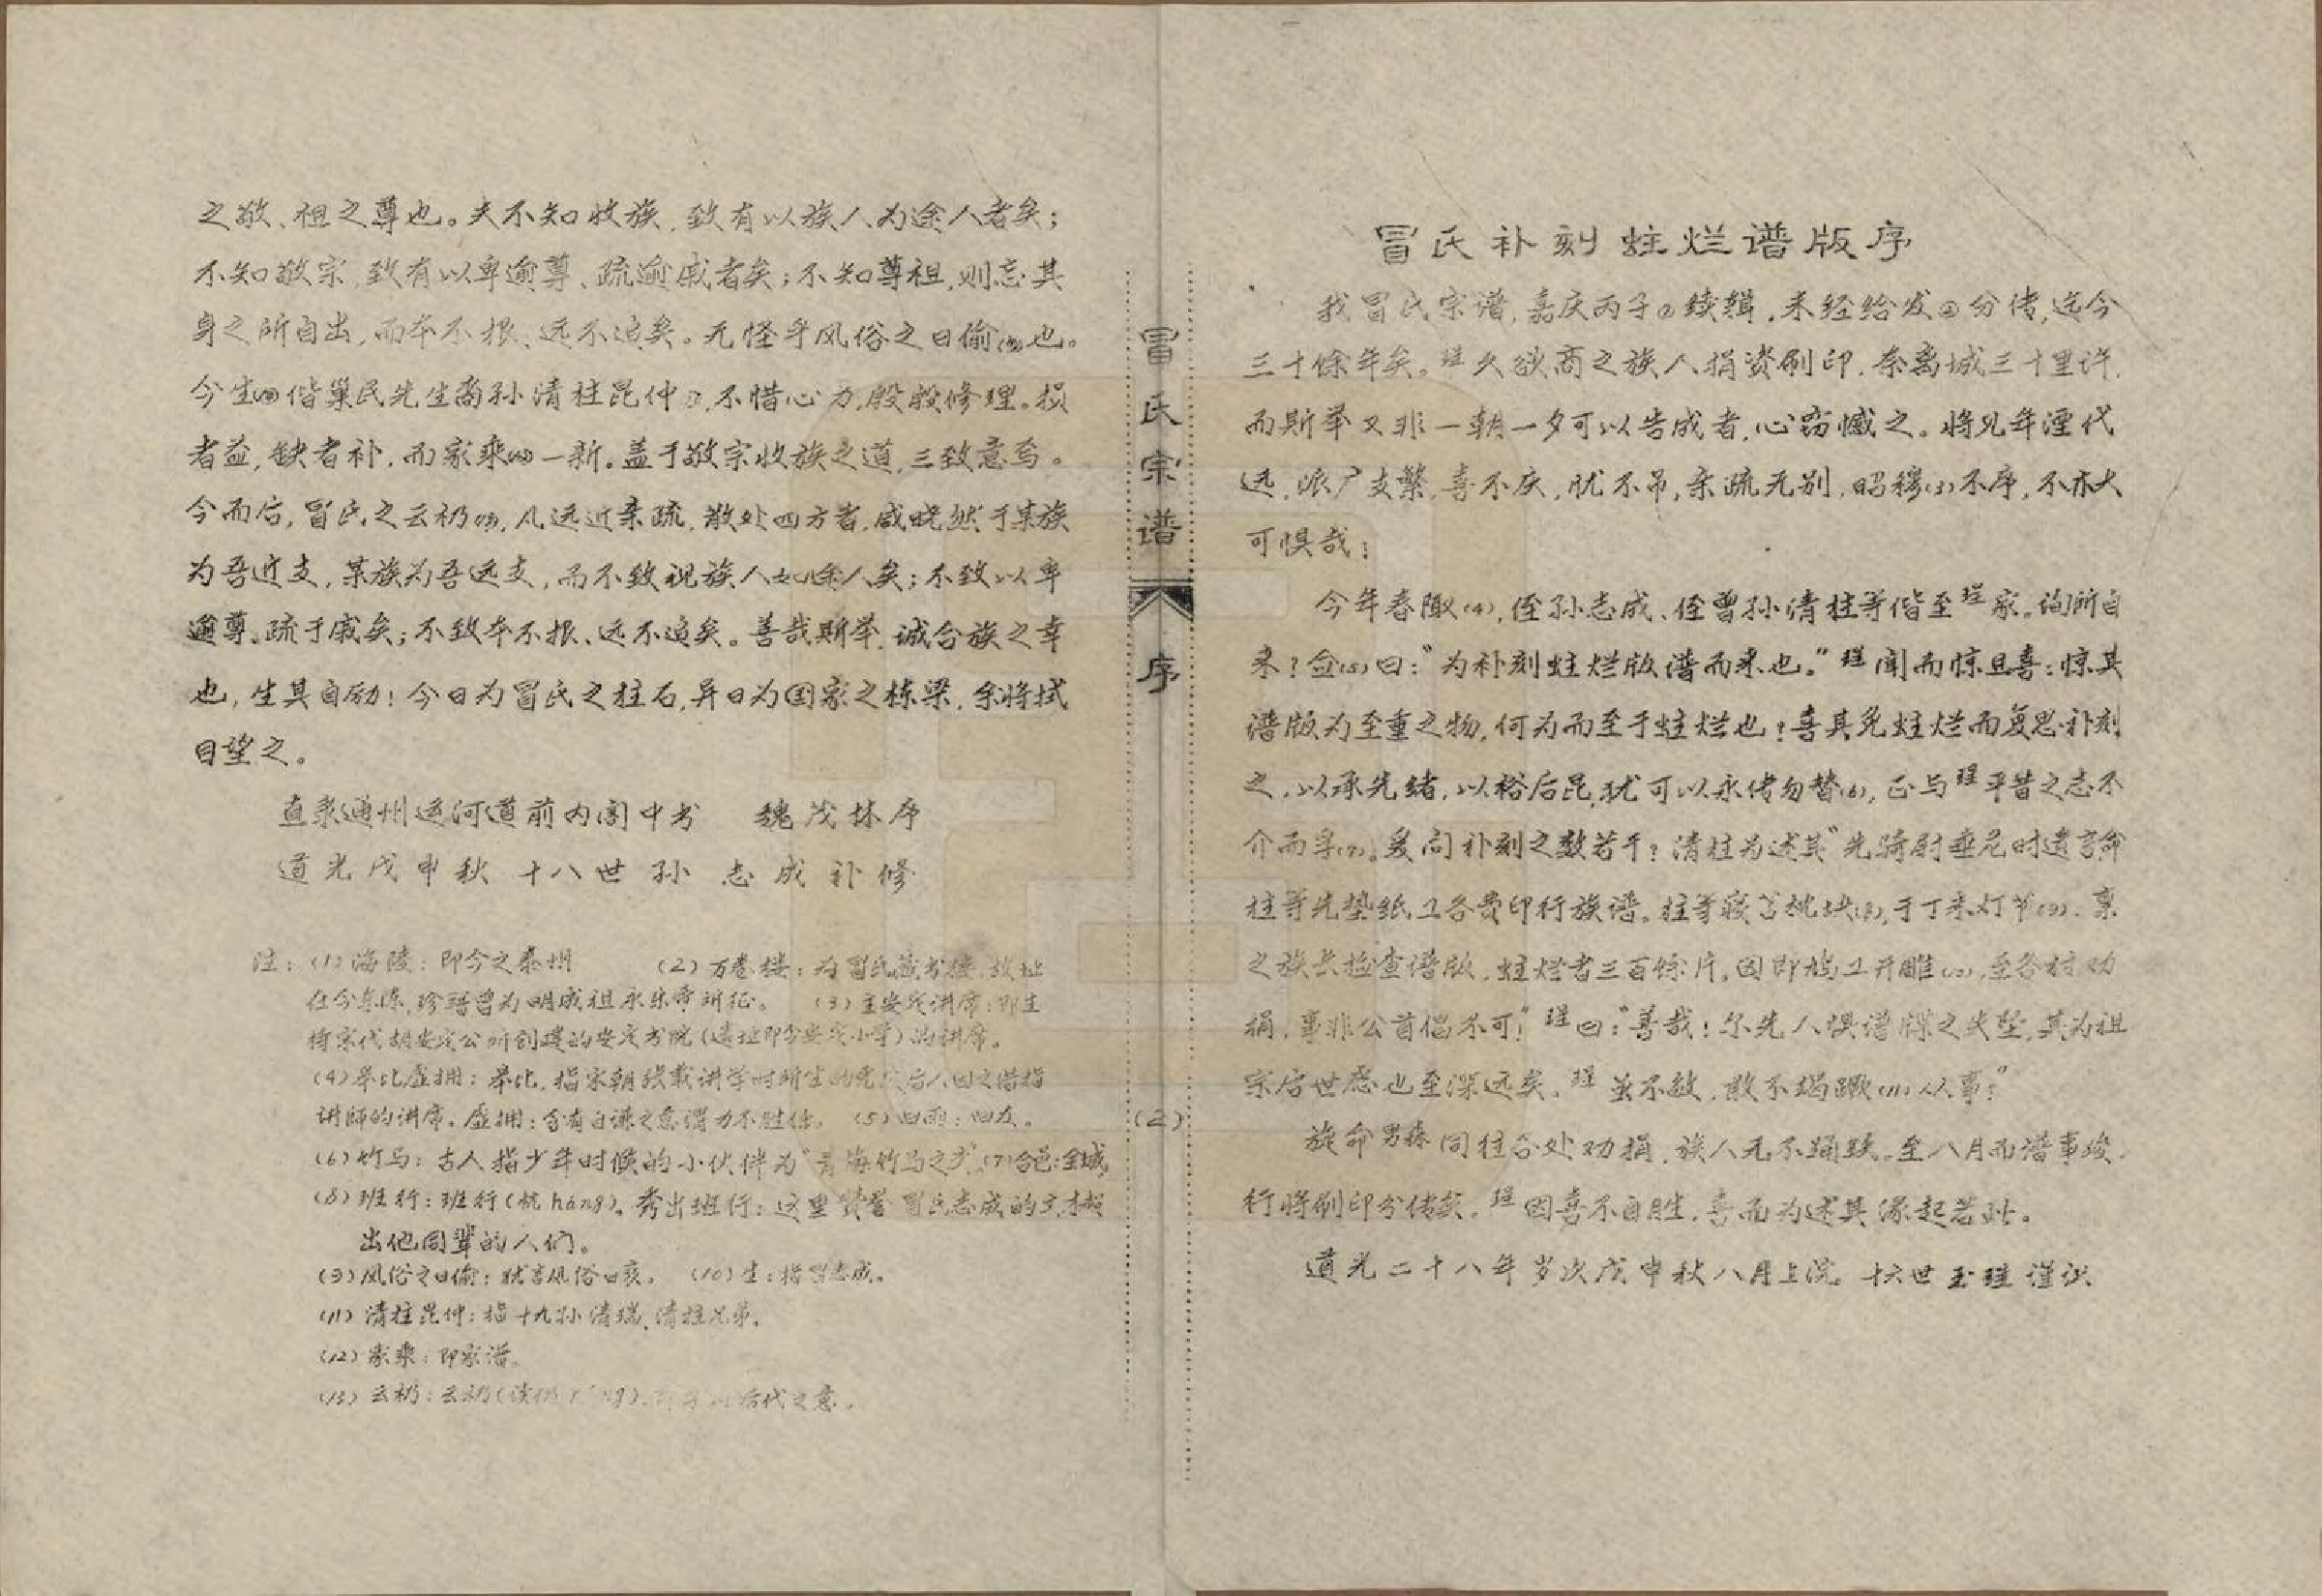 之敬、祖之尊也。夫不知收族,致有以族人为途人者矣;
不知敬宗,致有以卑逾尊、疏逾戚者矣;不知尊祖,则忘其
身之所自出,而本不根、远不追矣。无怪乎风俗之日偷(9)也。
今生(10)偕巢民先生裔孙清柱昆仲,不惜心力,殷殷修理。损
者益,缺者补,而家乘(12)一新。盖于敬宗收族之道,三致意焉。
今而后,冒氏之云礽(13),凡远近亲疏,散处四方者,咸晓然于某族
为吾近支,某族为吾远支,而不致视族人如途人矣;不致以卑
逾尊。疏于戚矣;不致本不根、远不追矣。善哉斯举,诚合族之幸
也,生其自励!今日为冒氏之柱石,异日为国家之栋梁,余将拭
目望之。
直隶通州运河道前内阁中书 魏茂林序
道光戊申秋 十八世孙 志成补修
注:(1)海陵:即今之泰州 (2)万卷楼:为冒氏藏书楼,故址
在今东陈,珍籍曾为明成祖永乐帝所征。 (3)主安定讲席:即主
持宋代胡安定公所创建的安定书院(遗址即今安定小学)的讲席。
(4)皋比虚拥:皋比,指宋朝张载讲学时所坐的虎皮后人因之借指
讲师的讲席。虚拥:含有自谦之意谓力不胜任。 (5)四雨:四友。
(6)竹马:古人指少年时候的小伙伴为"青梅竹马之交"。(7)合邑:全城
(8)班行:班行(杭háng)。秀出班行:这里赞誉冒氏志成的文才超
出他同辈的人们。
(9)风俗之日偷:犹言风俗日衰。 (10)生:指冒志成。
(11)清柱昆仲:指十九孙清瑞、清柱兄弟。
(12)家乘:即家谱。
(13)云礽:云礽(读仍 后代之意。
冒氏宗谱
序
(2)
冒氏补刻蛀烂谱版序
我冒氏宗谱,嘉庆丙子①续辑,未经给发②分传,迄今
三十馀年矣。珄久欲商之族人捐资刷印,奈离城三十里许,
而斯举又非一朝一夕可以告成者,心窃憾之。将见年湮代
远,派广支繁,喜不庆,忧不吊,亲疏无别,昭穆(3)不序,不亦大
可惧哉!
今年春陬(4),侄孙志成、侄曾孙清柱等偕至珄家。询所自
来?佥(5)曰:"为补刻蛀烂版谱而来也。"珄闻而惊且喜:惊其
谱版为至重之物,何为而至于蛀烂也?喜其免蛀烂而复思补刻
之,以承先绪,以裕后昆,犹可以永传勿替(6),正与珄平昔之志不
介而孚(7)。爰问补刻之数若干?清柱为述其"先骑尉垂危时遗言命
柱等先垫纸工各费印行族谱。柱等寝苫枕块(8),于丁未灯节(9),禀
之族长检查谱版,蛀烂者三百馀片。因即鸠工开雕(10),至各村劝
捐,事非公首倡不可!"珄曰:"善哉!尔先人惧谱牒之失坠,其为祖
宗后世虑也至深远矣。珄虽不敏,敢不竭蹶(11)从事?"
旋命男森同往各处劝捐,族人无不踊跃。至八月而谱事竣,
行将刷印分传矣。珄因喜不自胜,喜而为述其缘起若此。
道光二十八年岁次戊申秋八月上浣 十六世玉珄谨识